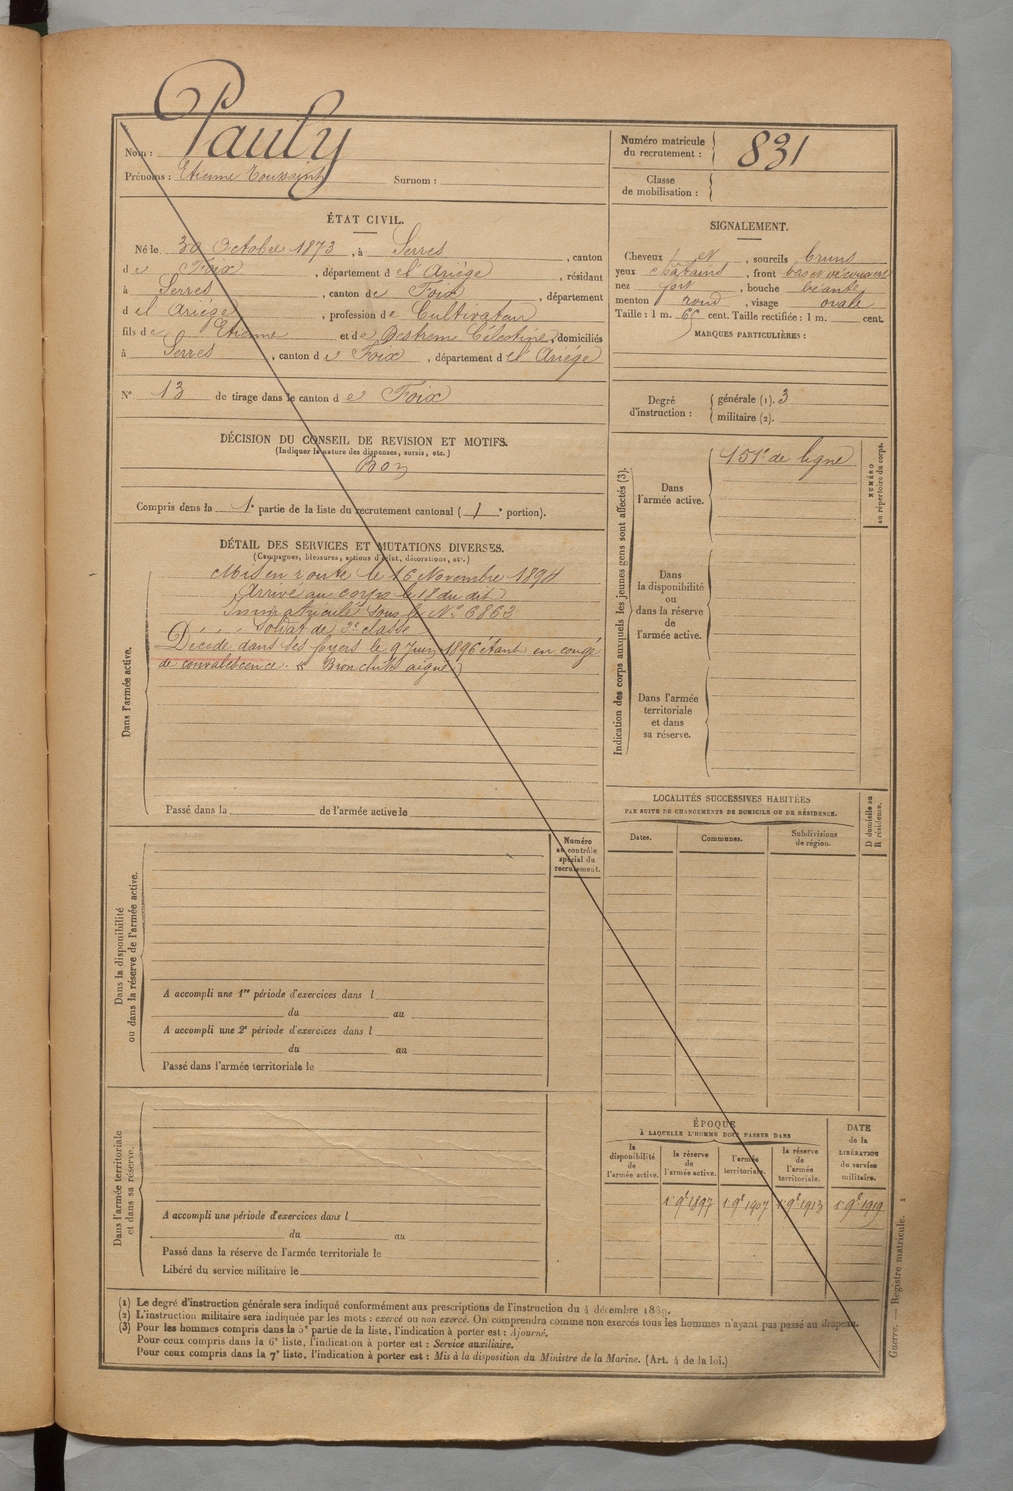 Nom : Pauly
Prénoms : Etienne Toussaint Surnom :
Numéro matricule
du recrutement : 831
Classe
de mobilisation :
ÉTAT CIVIL.
Né le 30 Octobre 1873, à Serres, canton
de Foix, département de l'Ariège, résidant
à Serres, canton de Foix, département
de l'Ariège, profession de Cultivateur
fils de Etienne et de Destrem Célestine, domiciliés
à Serres, canton de Foix, département de l'Ariège
N° 13 de tirage dans le canton de Foix
SIGNALEMENT.
Cheveux et, sourcils bruns
yeux châtains, front bas et découvert
nez fort, bouche béante
menton rond, visage ovale
Taille : 1 m. 65 cent. Taille rectifiée : 1 m. cent.
MARQUES PARTICULIÈRES :
Degré
d'instruction :
générale (1). 3
militaire (2).
DÉCISION DU CONSEIL DE REVISION ET MOTIFS.
(Indiquer la nature des dispenses, sursis, etc.)
Bon
Compris dans la 1e partie de la liste du recrutement cantonal ( 1 e portion).
DÉTAIL DES SERVICES ET MUTATIONS DIVERSES.
(Campagnes, blessures, actions d'éclat, décorations, etc.)
Dans l'armée active.
Mis en route le 16 Novembre 1894
Arrivé au corps le 18 du dit
Immatriculé sous le N° 6862
Soldat de 2e classe
Décédé dans ses foyers le 9 Juin 1896 étant en congé
de convalescence. (Bronchite aigue)
Passé dans la de l'armée active le
Indication des corps auxquels les jeunes gens sont affectés (3).
Dans
l'armée active.
151e de ligne
NUMÉRO
au répertoire du corps.
Dans
la disponibilité
ou
dans la réserve
de
l'armée active.
Dans l'armée
territoriale
et dans
sa réserve.
LOCALITÉS SUCCESSIVES HABITÉES
PAR SUITE DE CHANGEMENTS DE DOMICILE OU DE RÉSIDENCE.
Dates.
Communes.
Subdivisions
de région.
D domicile ou
R résidence.
Numéro
au contrôle
spécial du
recrutement.
Dans la disponibilité
ou dans la réserve de l'armée active.
A accompli une 1re période d'exercices dans l
du au
A accompli une 2e période d'exercices dans l
du au
Passé dans l'armée territoriale le
Dans l'armée territoriale
et dans sa réserve.
A accompli une période d'exercices dans l
du au
Passé dans la réserve de l'armée territoriale le
Libéré du service militaire le
ÉPOQUE
À LAQUELLE L'HOMME DOIT PASSER DANS
la
disponibilité
de
l'armée active.
la réserve
de
l'armée active.
l'armée
territoriale.
la réserve
de
l'armée
territoriale.
DATE
de la
LIBÉRATION
du service
militaire.
1 9e 1897 1 9e 1907 1 9e 1913 1 9e 1919
(1) Le degré d'instruction générale sera indiqué conformément aux prescriptions de l'instruction du 4 décembre 1889.
(2) L'instruction militaire sera indiquée par les mots : exercé ou non exercé. On comprendra comme non exercés tous les hommes n'ayant pas passé au drapeau.
(3) Pour les hommes compris dans la 5e partie de la liste, l'indication à porter est : Ajourné.
Pour ceux compris dans la 6e liste, l'indication à porter est : Service auxiliaire.
Pour ceux compris dans la 7e liste, l'indication à porter est : Mis à la disposition du Ministre de la Marine. (Art. 4 de la loi.)
Guerre. Registre matricule. 1